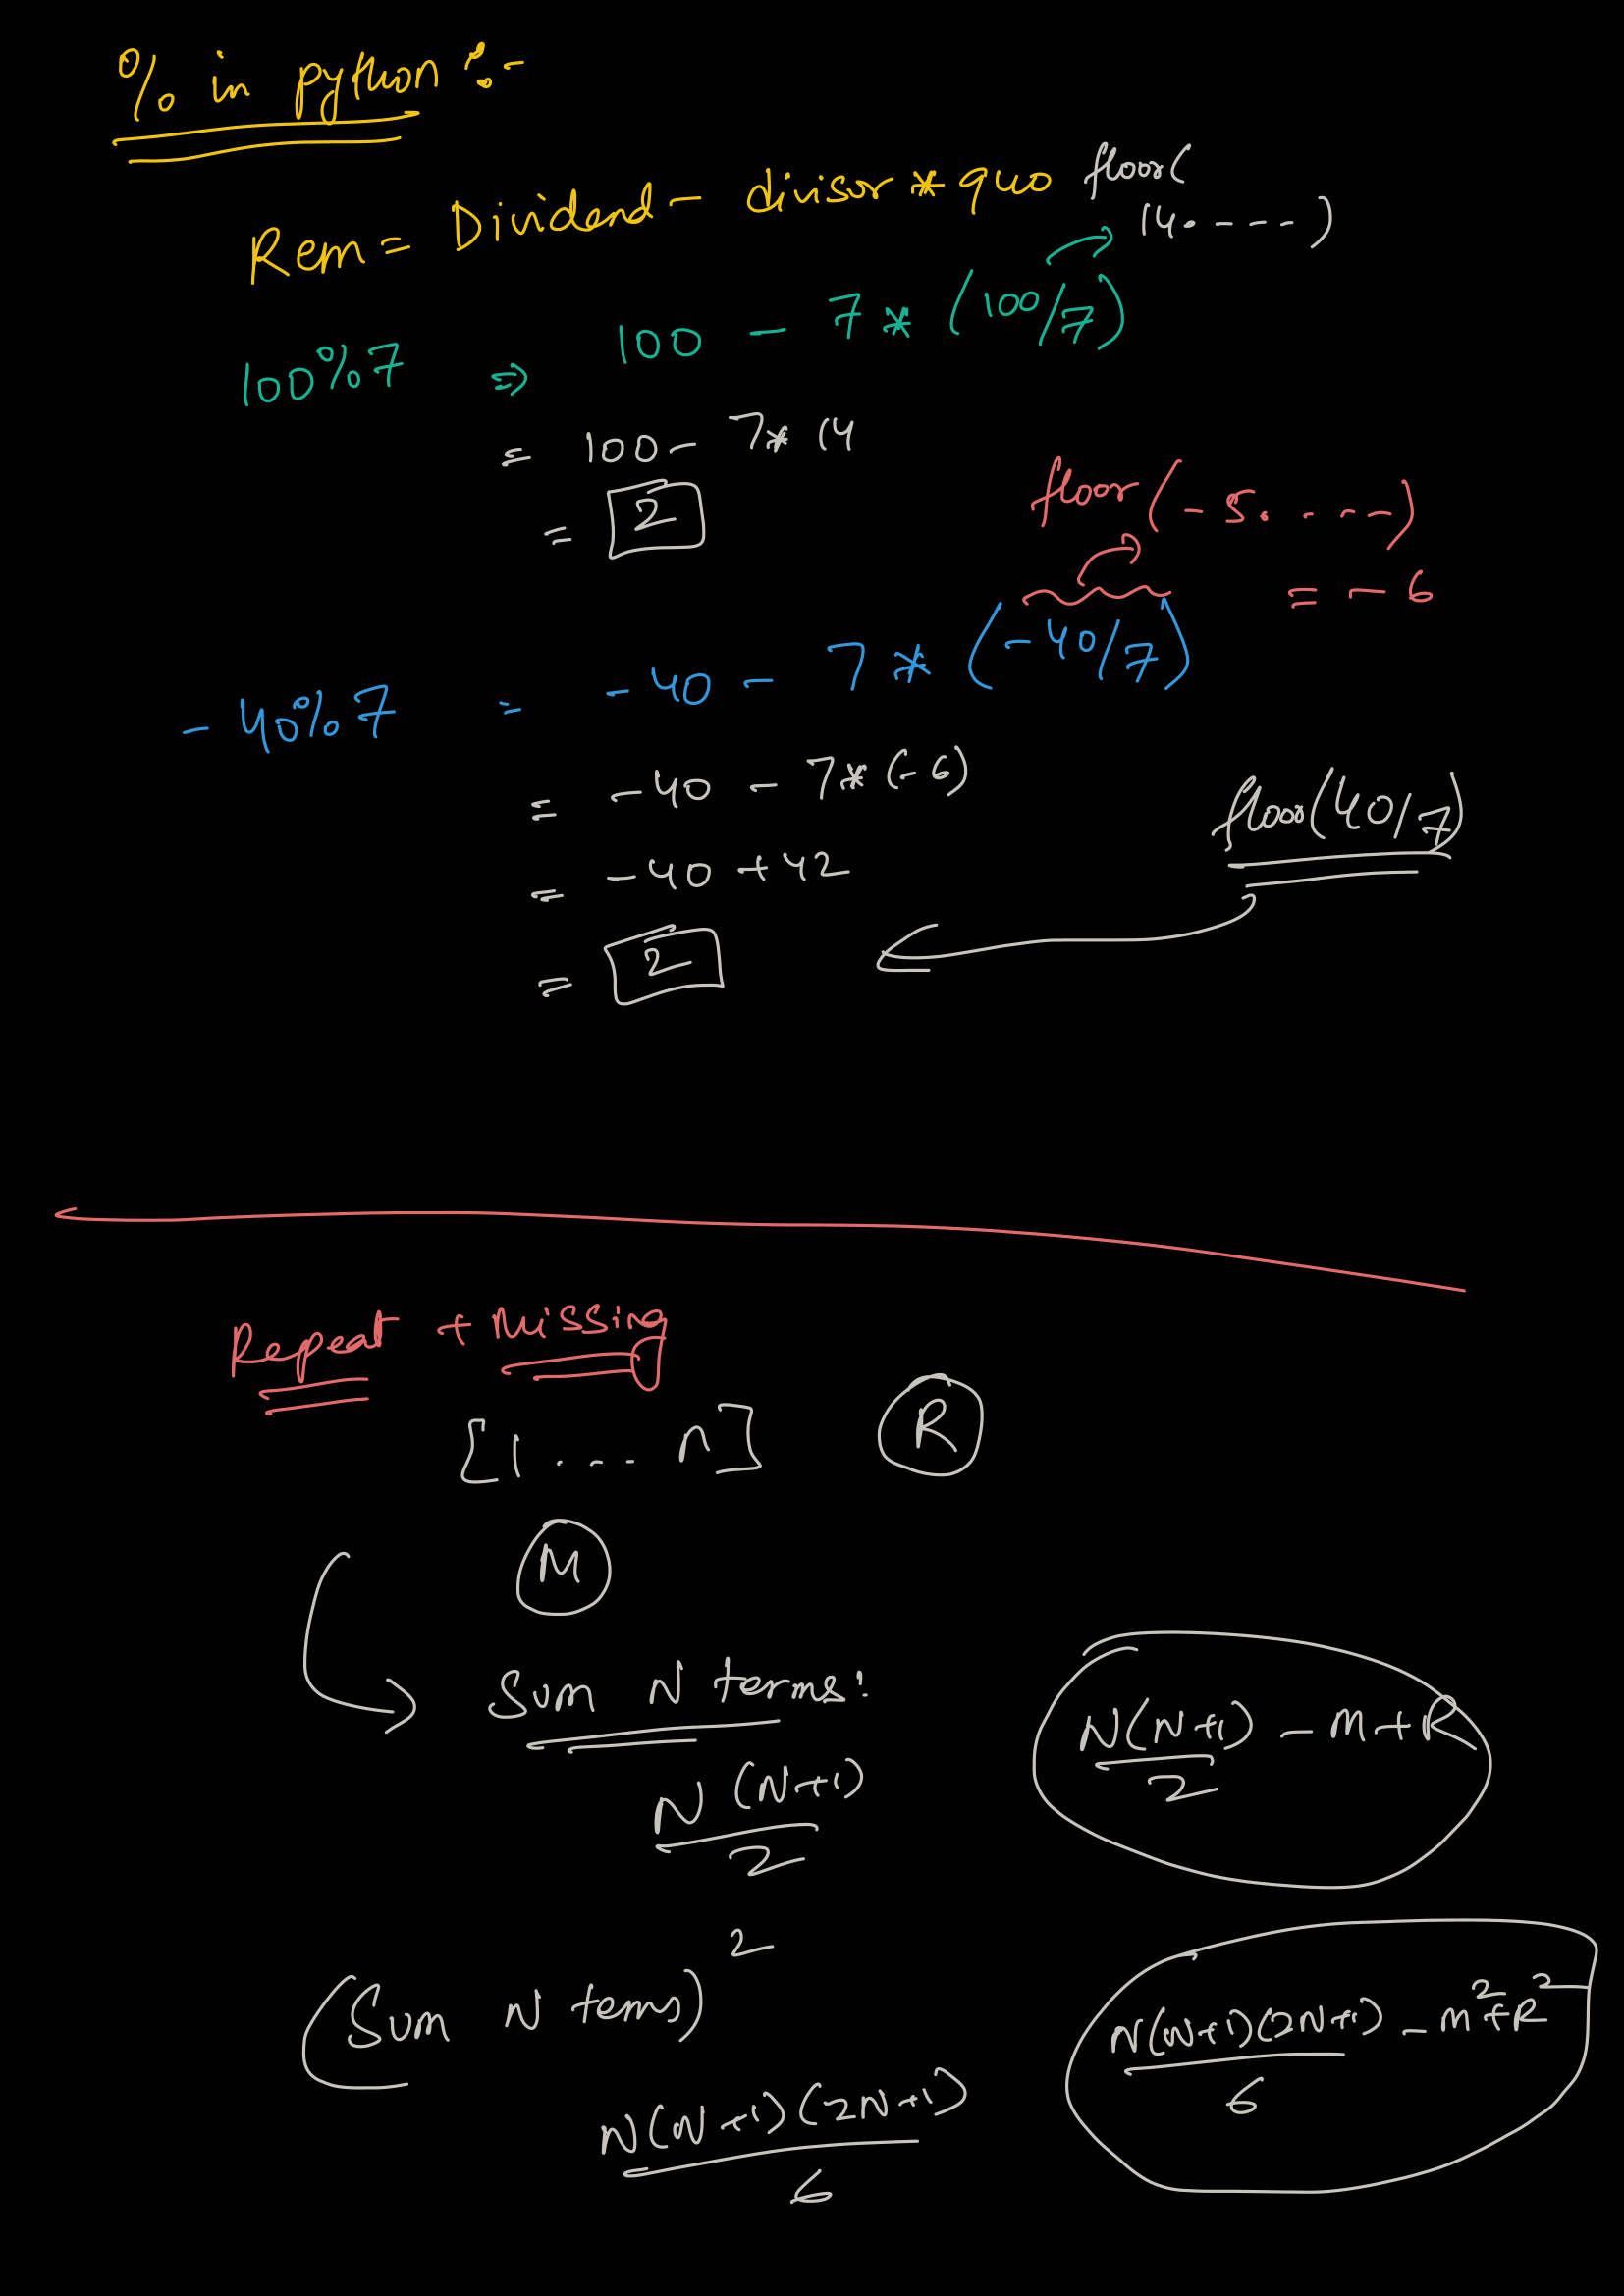 % in python :-
Rem = Dividend - divisor * quo
floor(
14. - - - -)
100%7 => 100 - 7 * (100/7)
= 100 - 7 * 14
= 2
floor(-5. - - - -)
= -6
-40%7 = -40 - 7 * (-40/7)
= -40 - 7 * (-6)
= -40 + 42
floor(40/7)
= 2
Repeat + Missing
[1 . . . n]
R
M
Sum N terms:
N(N+1)/2
N(N+1)/2 - M + R
(Sum N terms)²
N(N+1)(2N+1)/6
N(N+1)(2N+1)/6 - m² + R²